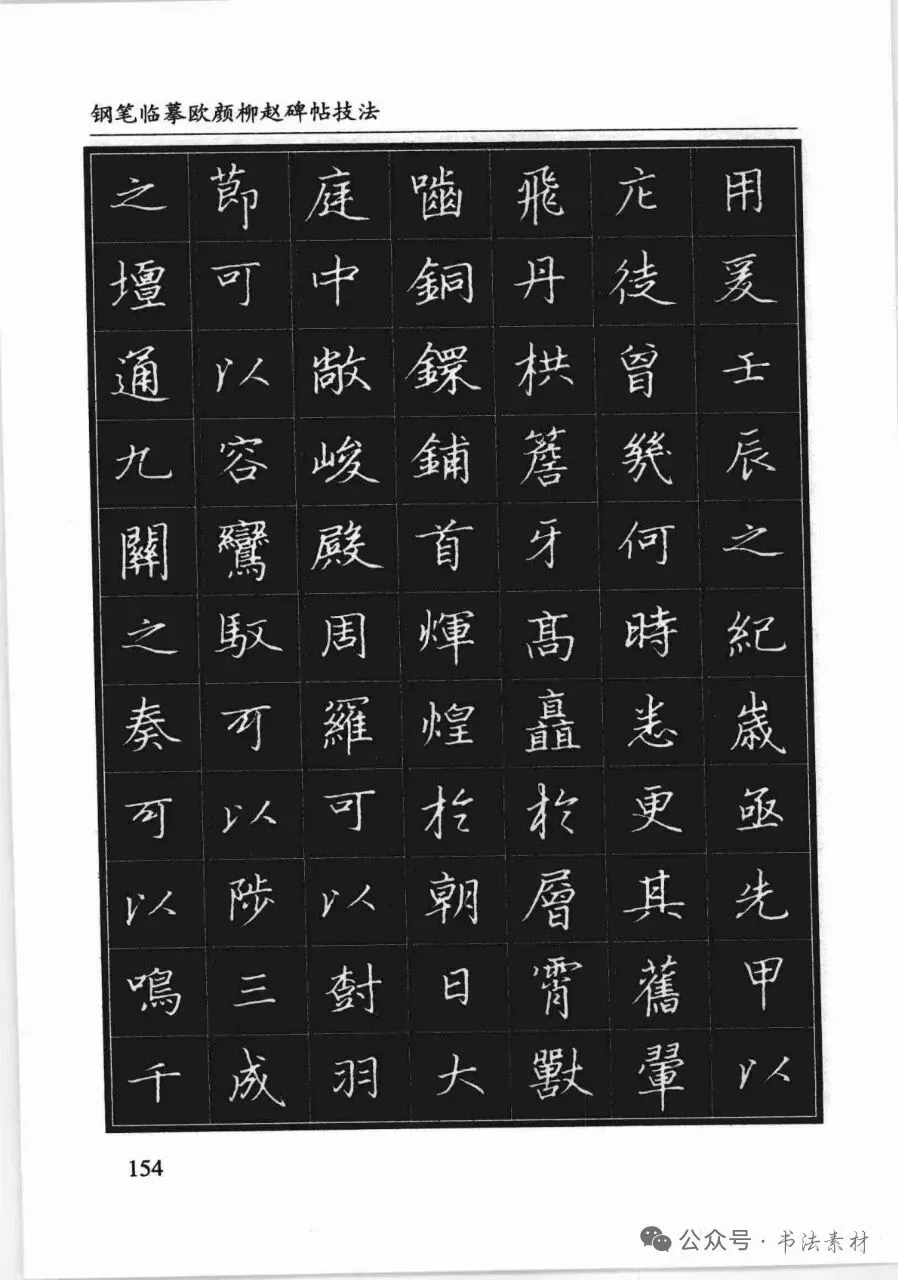 钢笔临摹欧颜柳赵碑帖技法
用爰壬辰之紀嵗亟先甲以
庀徒曾幾何時悉更其舊翬
飛丹栱簷牙髙矗於層霄獸
嚙銅鐶鋪首輝煌於朝日大
庭中敞峻殿周羅可以樹羽
莭可以容鸞馭可以陟三成
之壇通九關之奏可以鳴千
154
公众号·书法素材